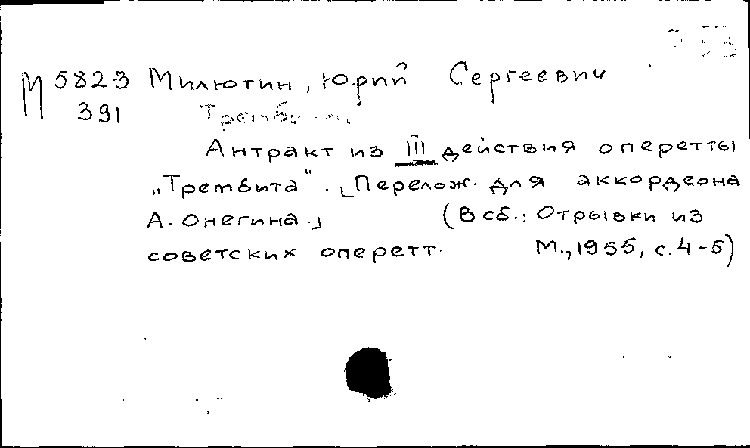 М 5823 Милютин, Юрий Сергеевич
391
Антракт из III действия оперетты
„Трембита". [Перелож. для аккордеона
А. Онегина.] (В сб.: Отрывки из
советских оперетт. М., 1955, с. 4-5)